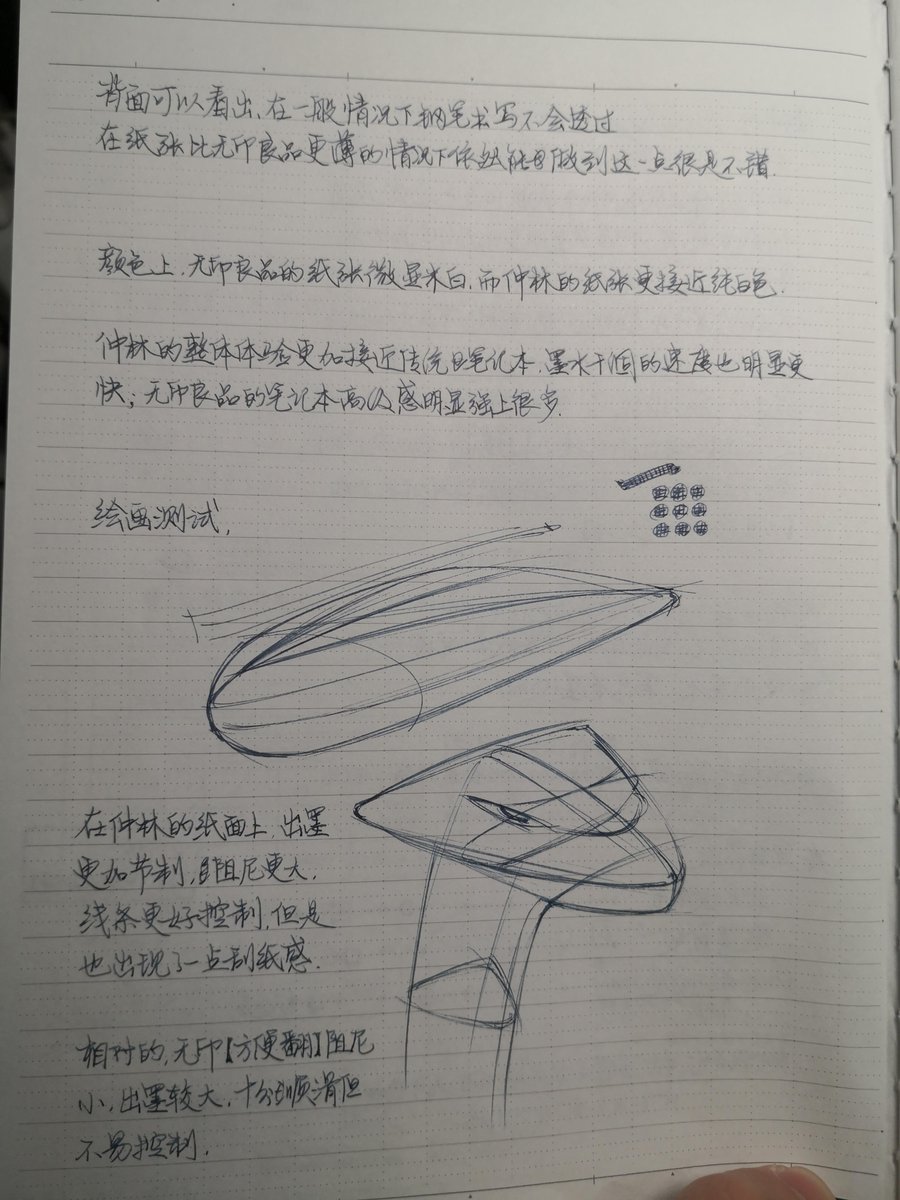 背面可以看出,在一般情况下钢笔书写不会透过
在纸张比无印良品更薄的情况下依然能够做到这一点很是不错.
颜色上,无印良品的纸张微显米白,而仲林的纸张更接近纯白色.
仲林的整体体验更加接近传统笔记本,墨水干涸的速度也明显更
快;无印良品的笔记本高级感明显强上很多.
绘画测试,
在仲林的纸面上,出墨
更加节制,阻尼更大,
线条更好控制,但是
也出现了一点刮纸感.
相对的,无印【方便翻】阻尼
小,出墨较大,十分顺滑但
不易控制.